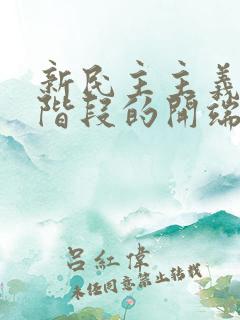 新民主主義
階段的開端
呂紅偉
未經同意禁止轉載